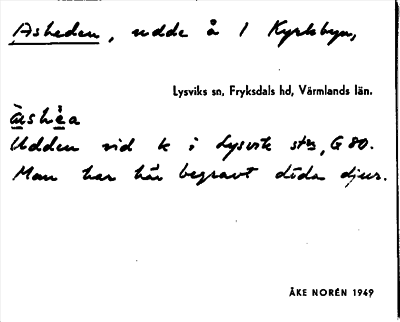 Asheden, udde å 1 Kyrkbyn,
Lysviks sn, Fryksdals hd, Värmlands län.
ä̀shè̱a
Udden vid k i Lysvik stn, G 80.
Man har här begravt döda djur.
ÅKE NORÉN 1949